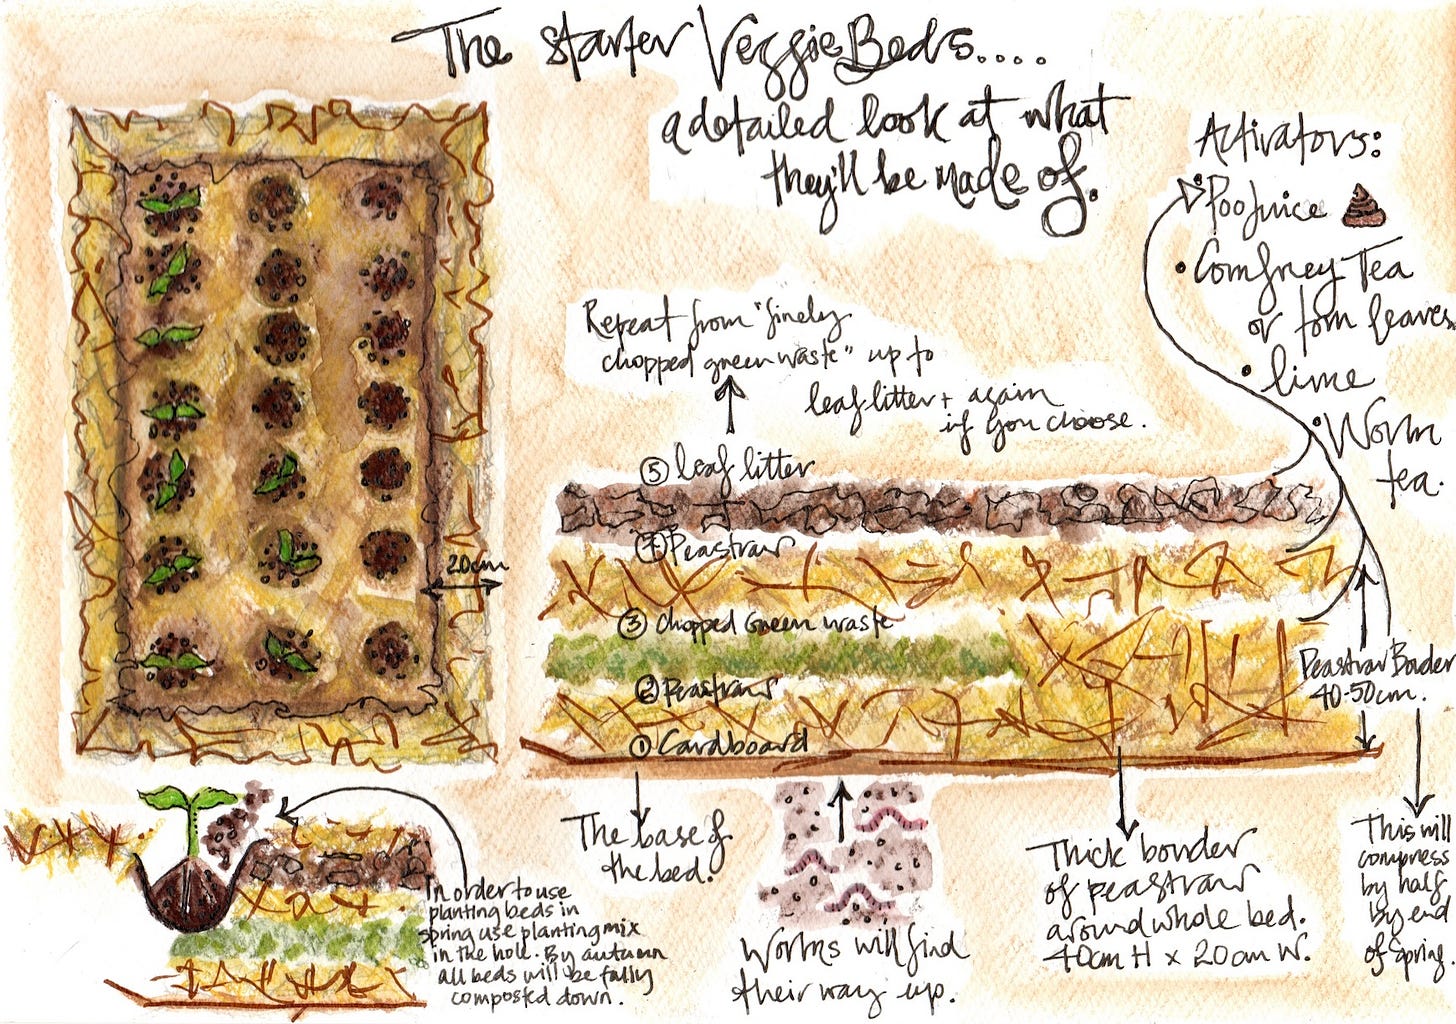 The starter Veggie Beds....
a detailed look at what
they'll be made of.
Activators:
Poo Juice
• Comfrey Tea
or torn leaves
• lime
• Worm
tea.
Repeat from "finely
chopped green waste" up to
leaf litter + again
if you choose.
⑤ leaf litter
④ Peastraw
③ Chopped Green waste
② Peastraw
① Cardboard
20cm
Peastraw Border
40-50cm.
The base of
the bed.
Worms will find
their way up.
Thick border
of peastraw
around whole bed.
40cm H x 20cm W.
This will
compress
by half
by end
of Spring.
In order to use
planting beds in
spring use planting mix
in the hole. By autumn
all beds will be fully
composted down.